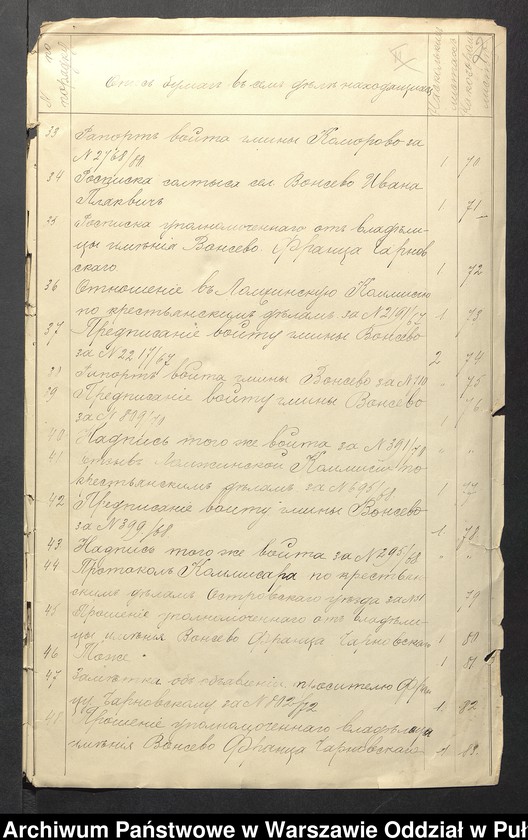 N по порядку
Опись бумагъ въ семъ дѣлѣ находящихся
33 Рапортъ войта гмины Коморово за
N 2768/69 1 70
34 Росписка солтыса сел. Вонсево Ивана
1 71
35 Росписка уполномоченнаго отъ владѣль-
цы имѣнія Вонсево Франца Чарнов
скаго 1 72
36 Отношеніе въ Ломжинскую Коммисію
по крестьянскимъ дѣламъ за N 2191/67 1 73
37 Предписаніе войту гмины Вонсево
за N 2217/67 2 74
38 Рапортъ войта гмины Вонсево за N 110 " 75
39 Предписаніе войту гмины Вонсево
за N 1 76
40 Надпись того же войта за N 391/70 " "
41 Отзывъ Ломжинской Коммисіи по
крестьянскимъ дѣламъ за N 695/68 1 77
42 Предписаніе войту гмины Вонсево
за N 399/68 1 78
43 Надпись того же войта за N 295/68 " "
44 Протоколъ Коммисара по крестьян-
скимъ дѣламъ Островскаго уѣзда за N 79
45 Прошеніе уполномоченнаго отъ владѣль-
цы имѣнія Вонсево Франца Чарновскаго 1 80
46 Тоже 1 81
47 Замѣтка объ объявленіи просителю Фран
цу Чарновскому за N 1 82
48 Прошеніе уполномоченнаго владѣльца
имѣнія Вонсево Франца Чарновскаго 83
Archiwum Państwowe w Warszawie Oddział w Puł